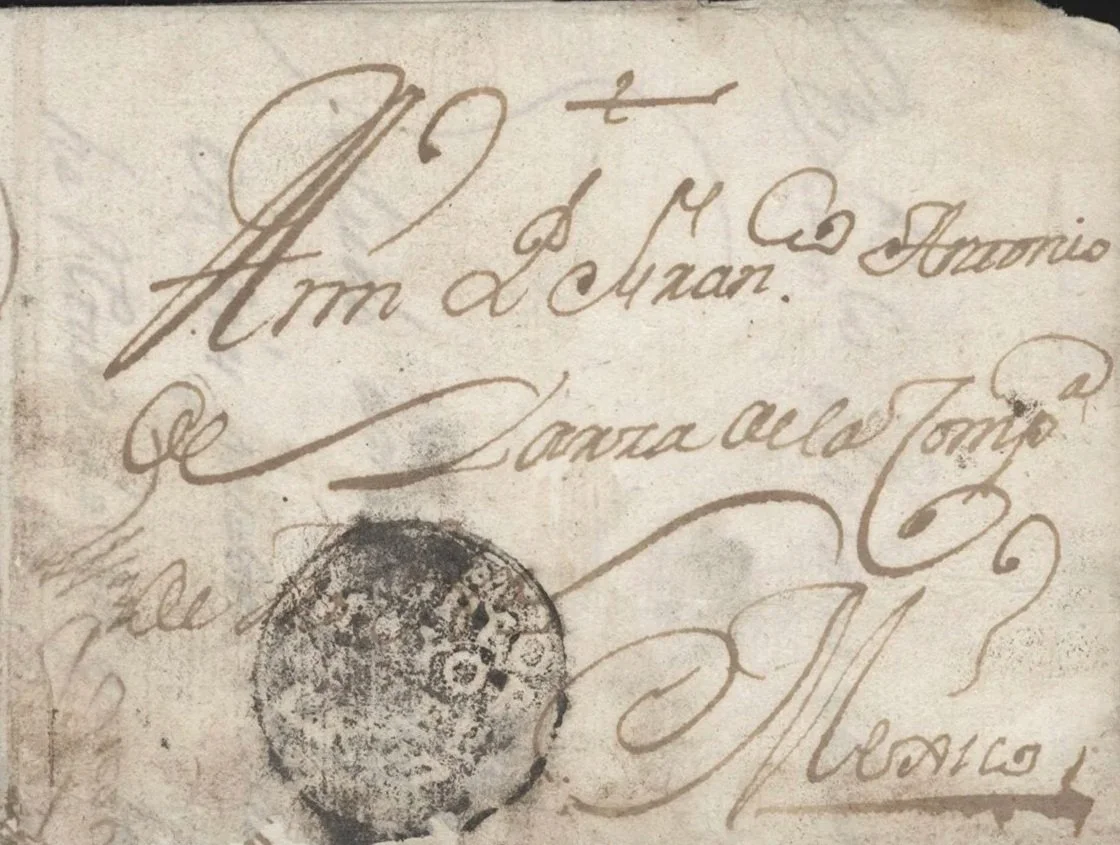 A mi D.n Fran.co Antonio
de Lanza de la Comp.a
de
Mexico